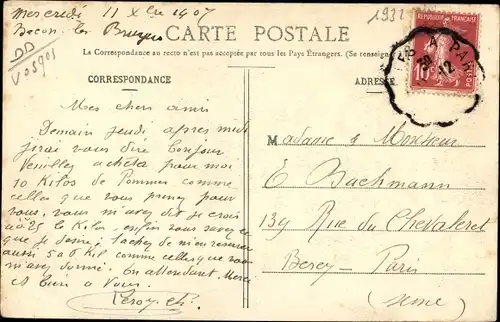 Mercredi 11 Xbre 1907
Becon les Bruyères
DD
Vosges
1931
CARTE POSTALE
La Correspondance au recto n'est pas acceptée par tous les Pays Étrangers. (Se renseign
CORRESPONDANCE
ADRESSE
REPUBLIQUE FRANÇAISE
10
POSTES
PARI
12
Mes chers amis
Demain jeudi apres midi
jirai vous dire bonjour
Veuillez acheta pour moi
10 Kilos de Pommes comme
celles que vous prenez pour
vous, vous m'avez dit je crois
a 0.25 le Kilo. enfin vous savez ce
que je desire; tachez de m'en reserver
aussi 500 Kil comme celles que vous
m'avez donné. En attendant. Merci
et bien a Vous.
Leroy. Ch.
Madame & Monsieur
E Bachmann
139 Rue du Chevaleret
Bercy - Paris
(Seine)